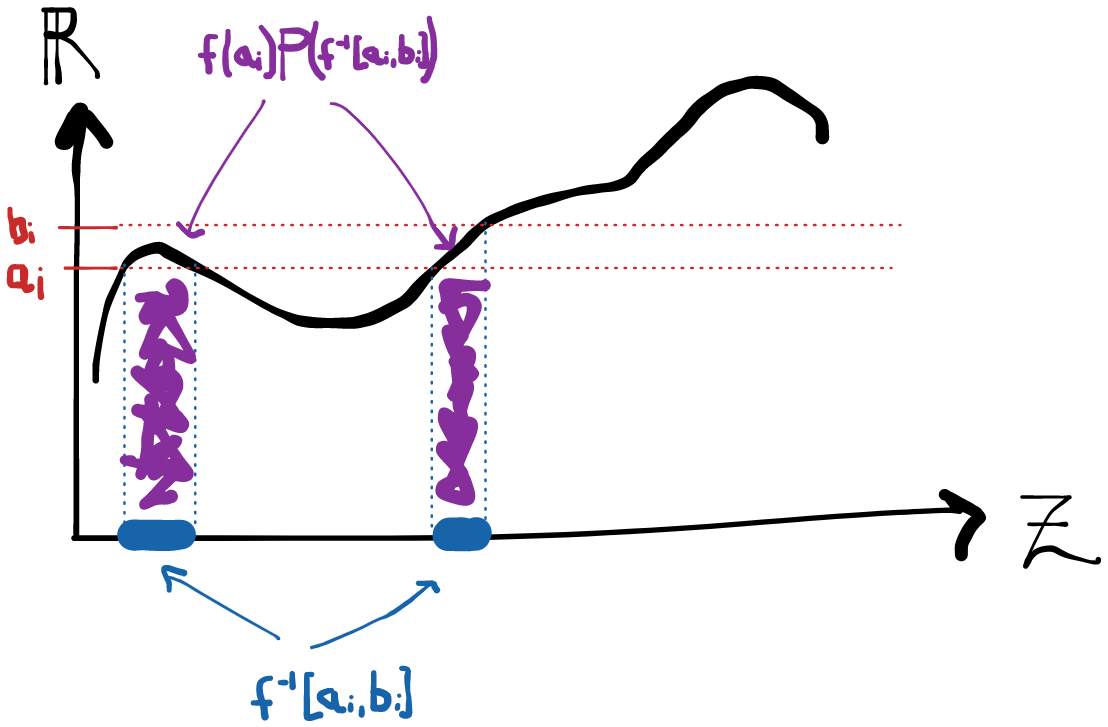 ℝ
f(aᵢ)ℙ(f⁻¹[aᵢ,bᵢ])
bᵢ
aᵢ
Z
f⁻¹[aᵢ,bᵢ]